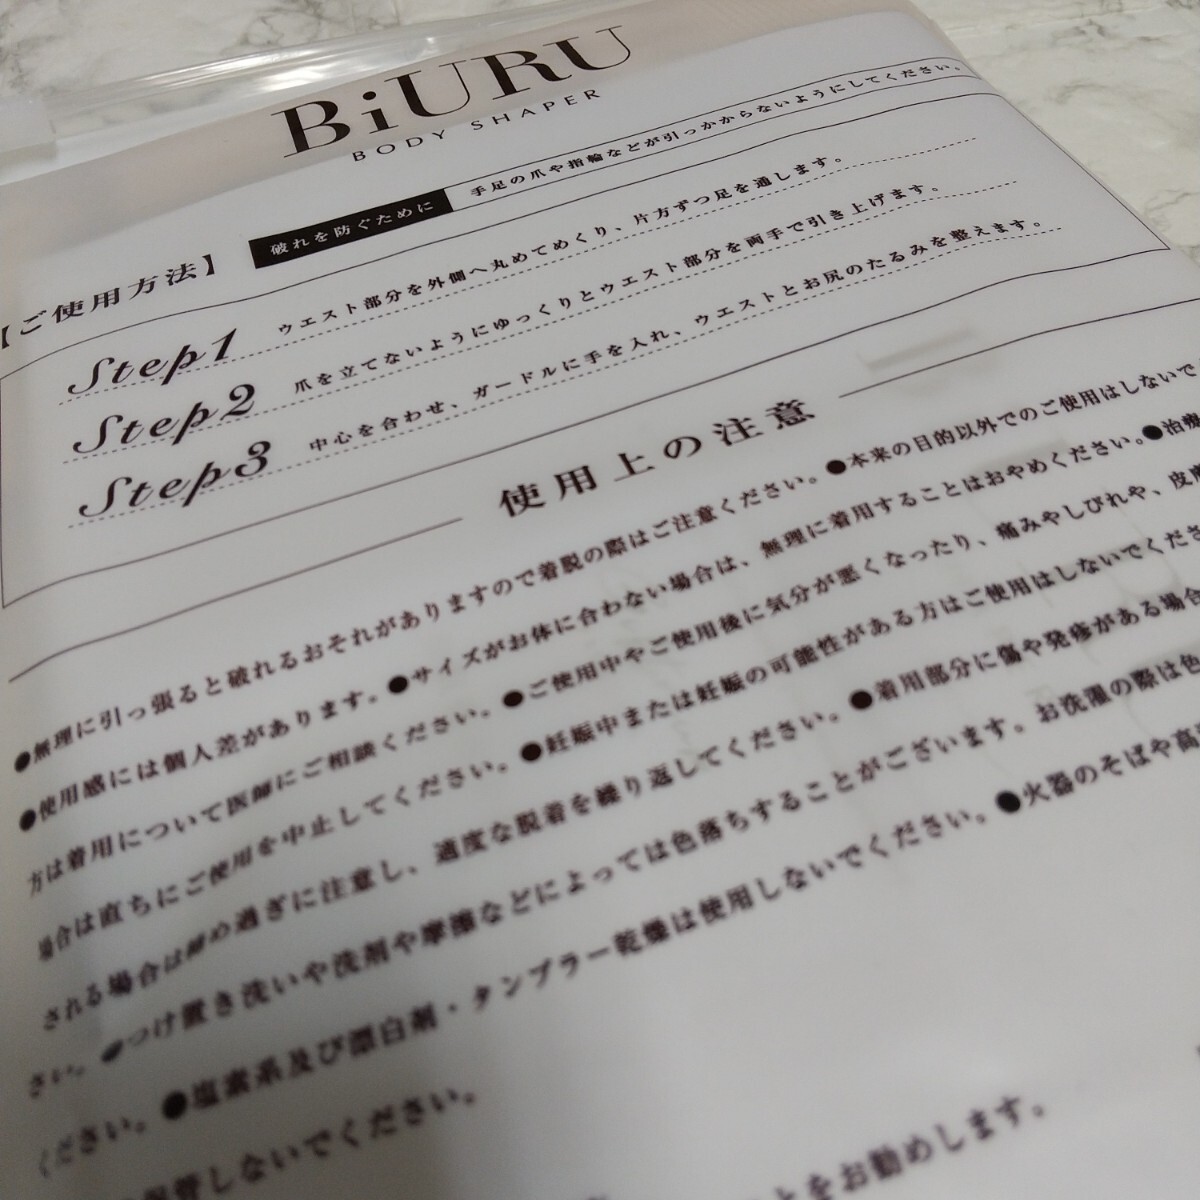 BiURU
BODY SHAPER
【ご使用方法】
破れを防ぐために
手足の爪や指輪などが引っかからないようにしてください。
Step1 ウエスト部分を外側へ丸めてめくり、片方ずつ足を通します。
Step2 爪を立てないようにゆっくりとウエスト部分を両手で引き上げます。
Step3 中心を合わせ、ガードルに手を入れ、ウエストとお尻のたるみを整えます。
使用上の注意
●無理に引っ張ると破れるおそれがありますので着脱の際はご注意ください。●本来の目的以外でのご使用はしないで
●使用感には個人差があります。●サイズがお体に合わない場合は、無理に着用することはおやめください。●治療
方は着用について医師にご相談ください。●ご使用中やご使用後に気分が悪くなったり、痛みやしびれや、皮膚
場合は直ちにご使用を中止してください。●妊娠中または妊娠の可能性がある方はご使用はしないでくださ
される場合は締め過ぎに注意し、適度な脱着を繰り返してください。●着用部分に傷や発疹がある場合
さい。●つけ置き洗いや洗剤や摩擦などによっては色落ちすることがございます。お洗濯の際は色
ください。●塩素系及び漂白剤・タンブラー乾燥は使用しないでください。●火器のそばや高
保管しないでください。
とをお勧めします。